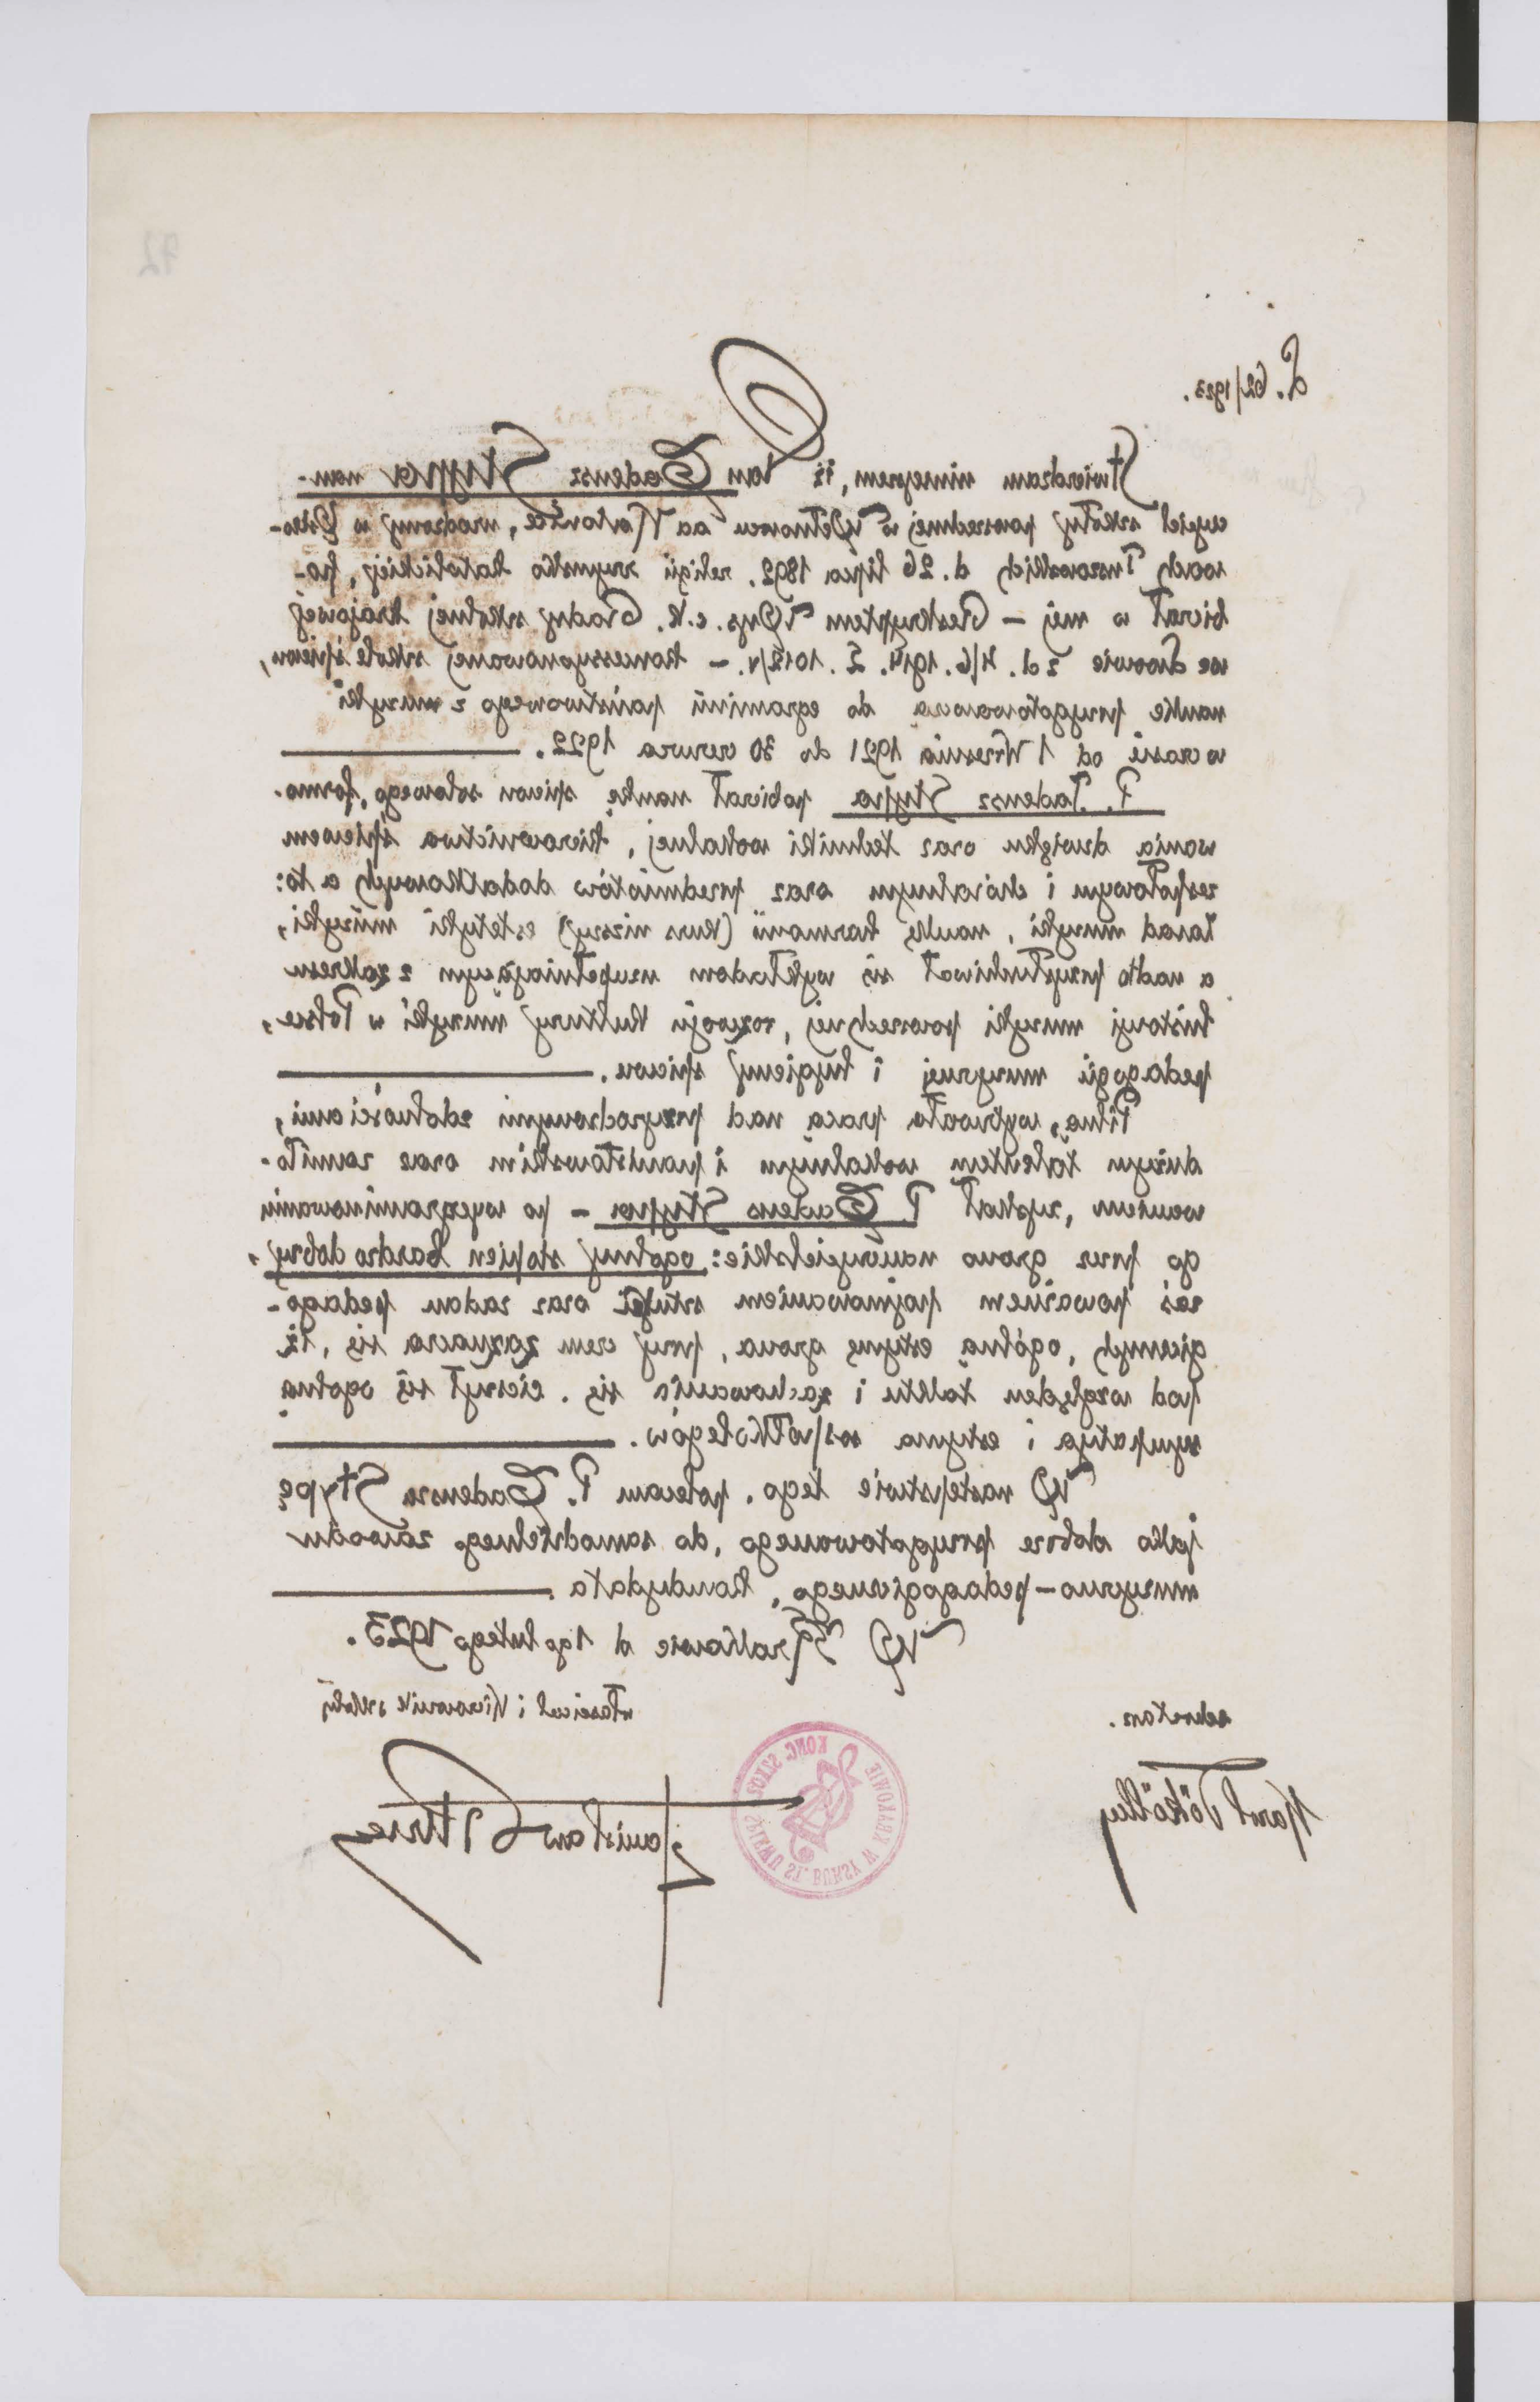 72
L. 62/1923.
Stwierdzam niniejszem, iż Pan Tadeusz Stypa nau-
czyciel szkoły powszechnej w Wełnowcu ad Katowice, urodzony w
wach Tuszowskich d. 26 lipca 1892. religii rzymsko katolickiej, po-
bierał w mej – Reskryptem Wys. c. k. Rady szkolnej krajowej
we Lwowie z d. 4/6. 1914. L. 1012/V. – koncessyonowanej szkole śpiewu,
naukę przygotowawczą do egzaminu państwowego z muzyki
w czasie od 1 Września 1921 do 30 czerwca 1922.
P. Tadeusz Stypa pobierał naukę śpiewu solowego, formo-
wania dzwięku oraz techniki wokalnej, kierownictwa śpiewem
zespołowym i chóralnym oraz przedmiotów dodatkowych a to:
zasad muzyki, naukę harmonii (kurs niższy) estetyki muzyki,
a nadto przysłuchiwał się wykładom uzupełniającym z zakresu
historyi muzyki powszechnej, rozwoju kultury muzyki w Polsce,
pedagogii muzycznej i hygieny śpiewu.
Pilną, wytrwałą pracą nad przyrodzonymi zdolnościami,
dużym talentem wokalnym i pianistowskim oraz zamiło-
waniem, zyskał P. Tadeus Stypa – po wyegzaminowaniu
go przez grono nauczycielskie: ogólny stopien bardzo dobry,
zaś poważnem pojmowaniem sztuki oraz zadań pedago-
gicznych, ogólną estymę grona, przy czem zaznacza się, iż
pod względem taktu i zachowania się, cieszył się ogólną
sympatyą i estymą współkolegów.
W następstwie tego, polecam P. Tadeusza Stypę
jako dobrze przygotowanego, do samodzielnego zawodu
muzyczno-pedagogicznego, kandydata.
W Krakowie d 1go lutego 1923.
sekretarz.
właściciel i Kierownik szkoły
Karol Tököly
Stanisław Bursa
KONC. SZKOŁA ŚPIEWU ST. BURSY W KRAKOWIE